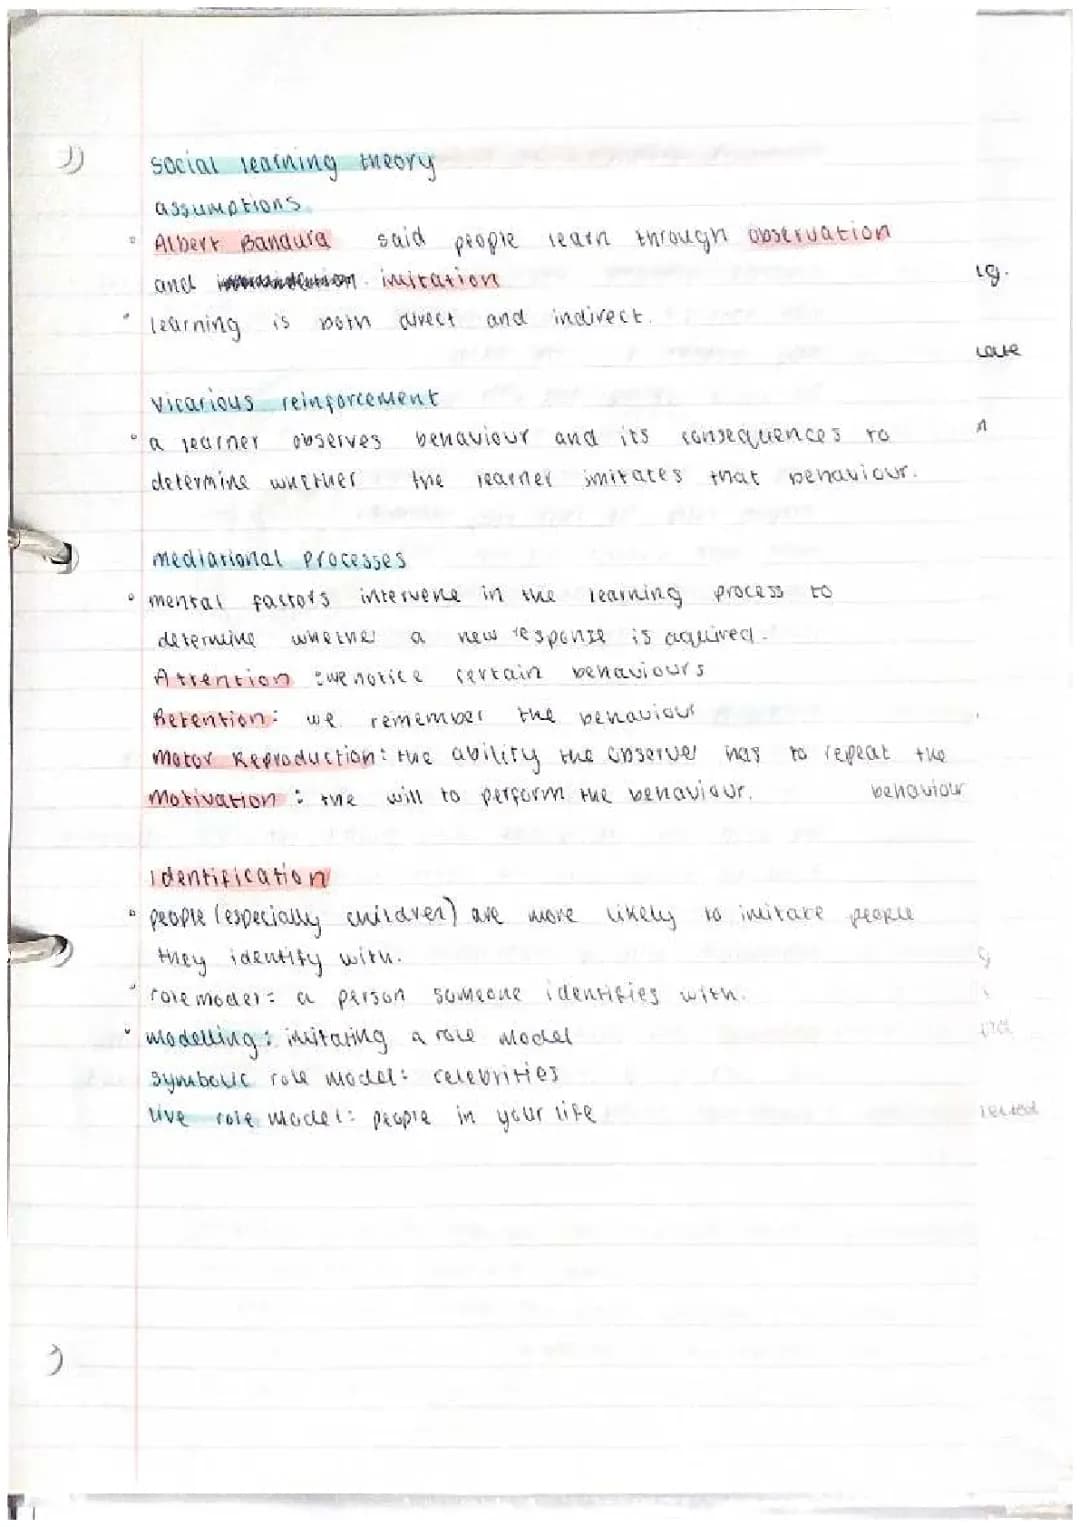 social learning theory
assumptions
Albert Bandura said people learn through observation
and imitation
learning is both direct and indirect.
vicarious reinforcement
a learner observes behaviour and its consequences to
determine whether the learner imitates that behaviour.
mediational processes
mental factors intervene in the learning process to
determine whether a new response is aquired.
Attention : we notice certain behaviours
Retention: we remember the behaviour
Motor Reproduction: the ability the observer has to repeat the
behaviour
Motivation : the will to perform the behaviour.
identification
people (especially children) are more likely to imitate people
they identify with.
role model: a person someone identifies with.
modelling: imitating a role model
symbolic role model: celebrities
live role model: people in your life